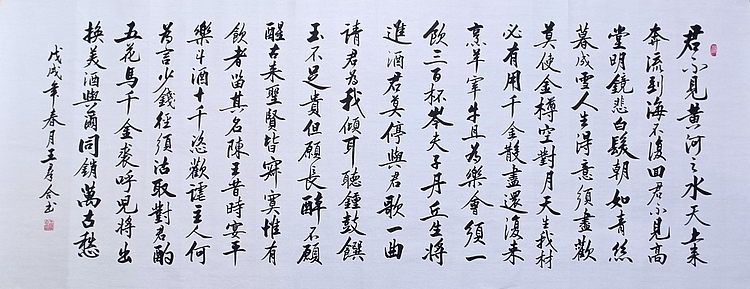 君不见黄河之水天上来
奔流到海不復回君不見高
堂明鏡悲白髮朝如青絲
暮成雪人生得意須盡歡
莫使金樽空對月天生我材
必有用千金散盡還復来
烹羊宰牛且為樂會須一
飲三百杯岑夫子丹丘生將
進酒君莫停與君歌一曲
請君為我傾耳聽鍾鼓饌
玉不足貴但願長醉不願
醒古来聖賢皆寂寞惟有
飲者留其名陳王昔時宴平
樂斗酒十千恣歡謔主人何
為言少錢徑須沽取對君酌
五花馬千金裘呼兒將出
換美酒與爾同銷萬古愁
戊戌年春月王